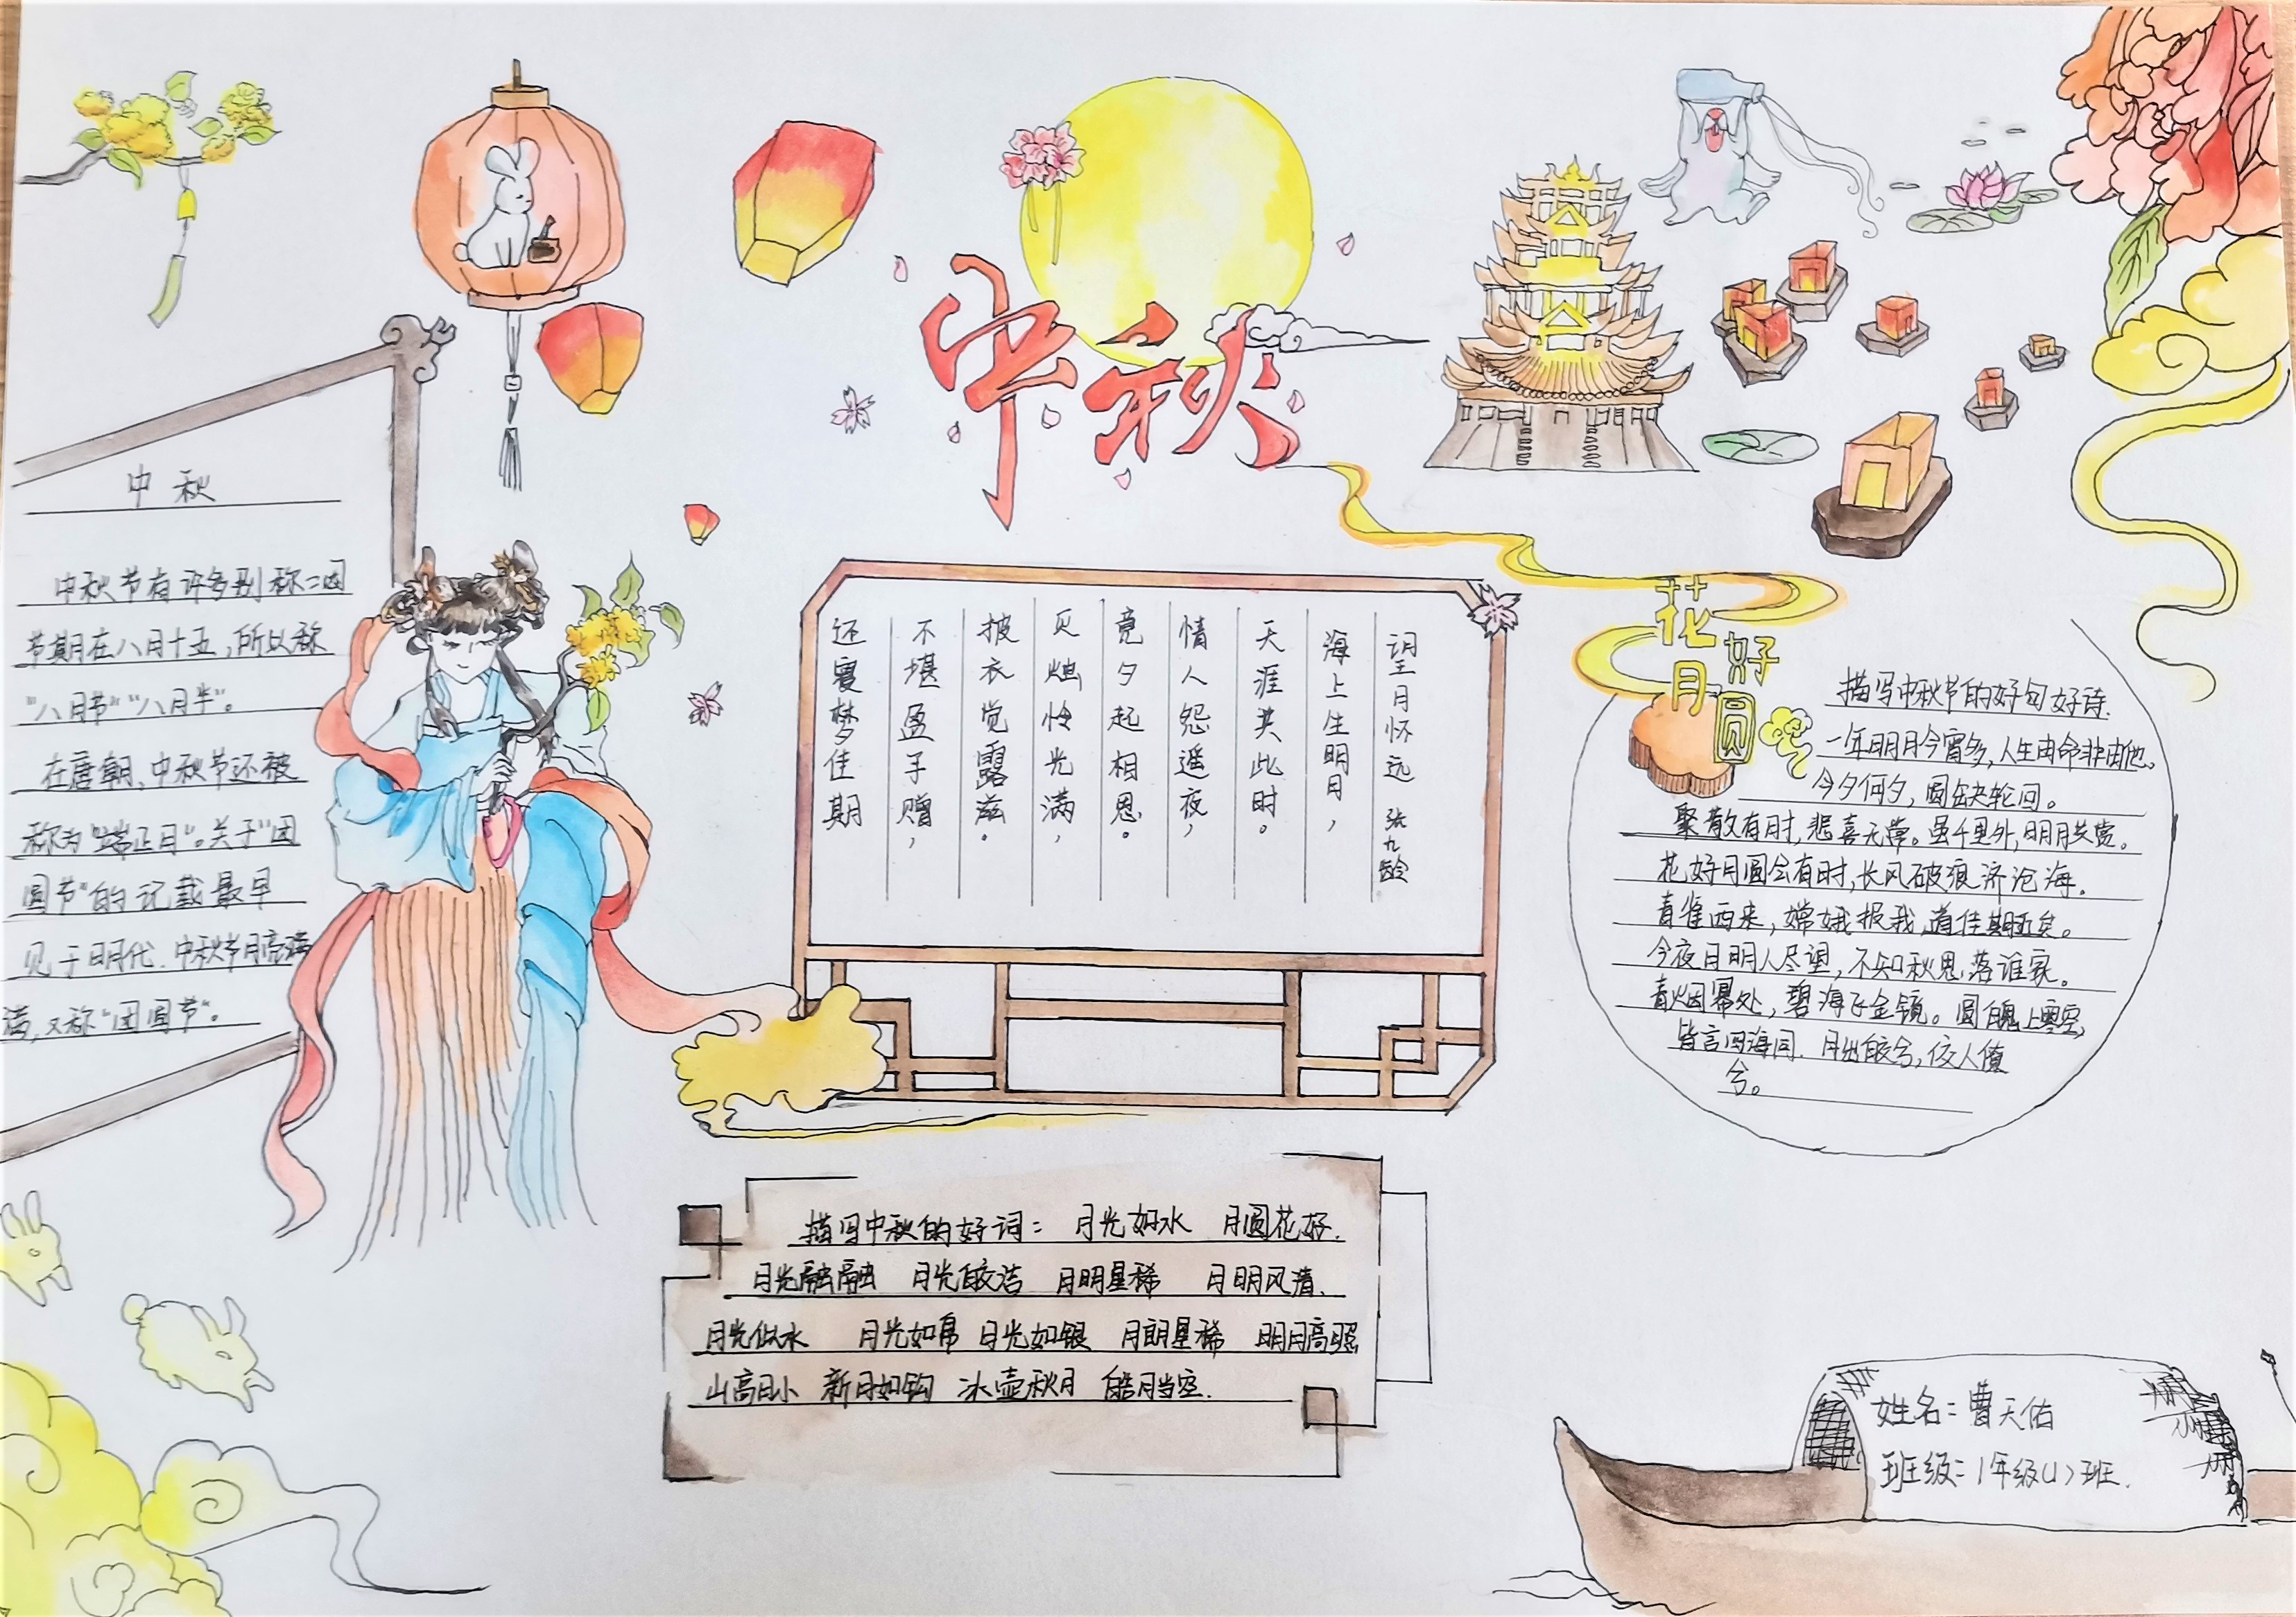 中秋
中秋
中秋节有许多别称:因
节期在八月十五,所以称
“八月节”“八月半”。
在唐朝、中秋节还被
称为“端正月”。关于“团
圆节”的记载最早
见于明代.中秋节月亮满
满,又称“团圆节”。
望月怀远 张九龄
海上生明月,
天涯共此时。
情人怨遥夜,
竟夕起相思。
灭烛怜光满,
披衣觉露滋。
不堪盈手赠,
还寝梦佳期
花好
月圆
描写中秋节的好句好诗.
一年明月今宵多,人生由命非由他。
今夕何夕,圆缺轮回。
聚散有时,悲喜无常。虽千里外,明月共赏。
花好月圆会有时,长风破浪济沧海.
青雀西来,嫦娥报我,道佳期近矣。
今夜月明人尽望,不知秋思落谁家。
青烟幂处,碧海飞金镜。圆魄上寒空,
皆言四海同.月出皎兮,佼人僚
兮。
描写中秋的好词: 月光如水 月圆花好.
月光融融 月光皎洁 月明星稀 月明风清.
月光似水 月光如帛 月光如银 月朗星稀 明月高照
山高月小 新月如钩 冰壶秋月 皓月当空.
姓名:曹天佑
班级:1年级(1)班.